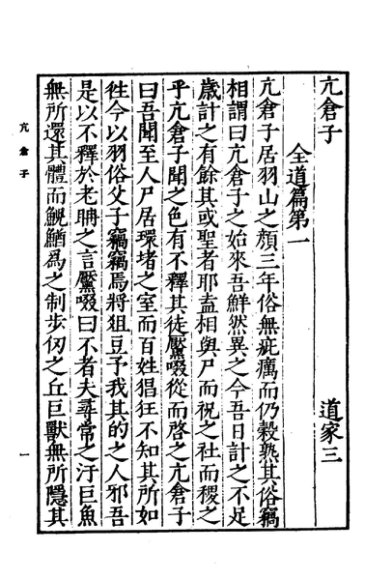 亢倉子
全道篇第一
道家三
亢倉子居羽山之顏三年俗無疵癘而仍穀熟其俗竊
相謂曰亢倉子之始來吾鮮然異之今吾日計之不足
歲計之有餘其或聖者耶盍相與尸而祝之社而稷之
乎亢倉子聞之色有不釋其徒厴啜從而啓之亢倉子
曰吾聞至人尸居環堵之室而百姓猖狂不知其所如
往今以羽俗父子竊竊焉將俎豆予我其的之人邪吾
是以不釋於老聃之言厴啜曰不者夫尋常之汙巨魚
無所還其體而鯢鰌爲之制步仞之丘巨獸無所隱其
亢倉子
一